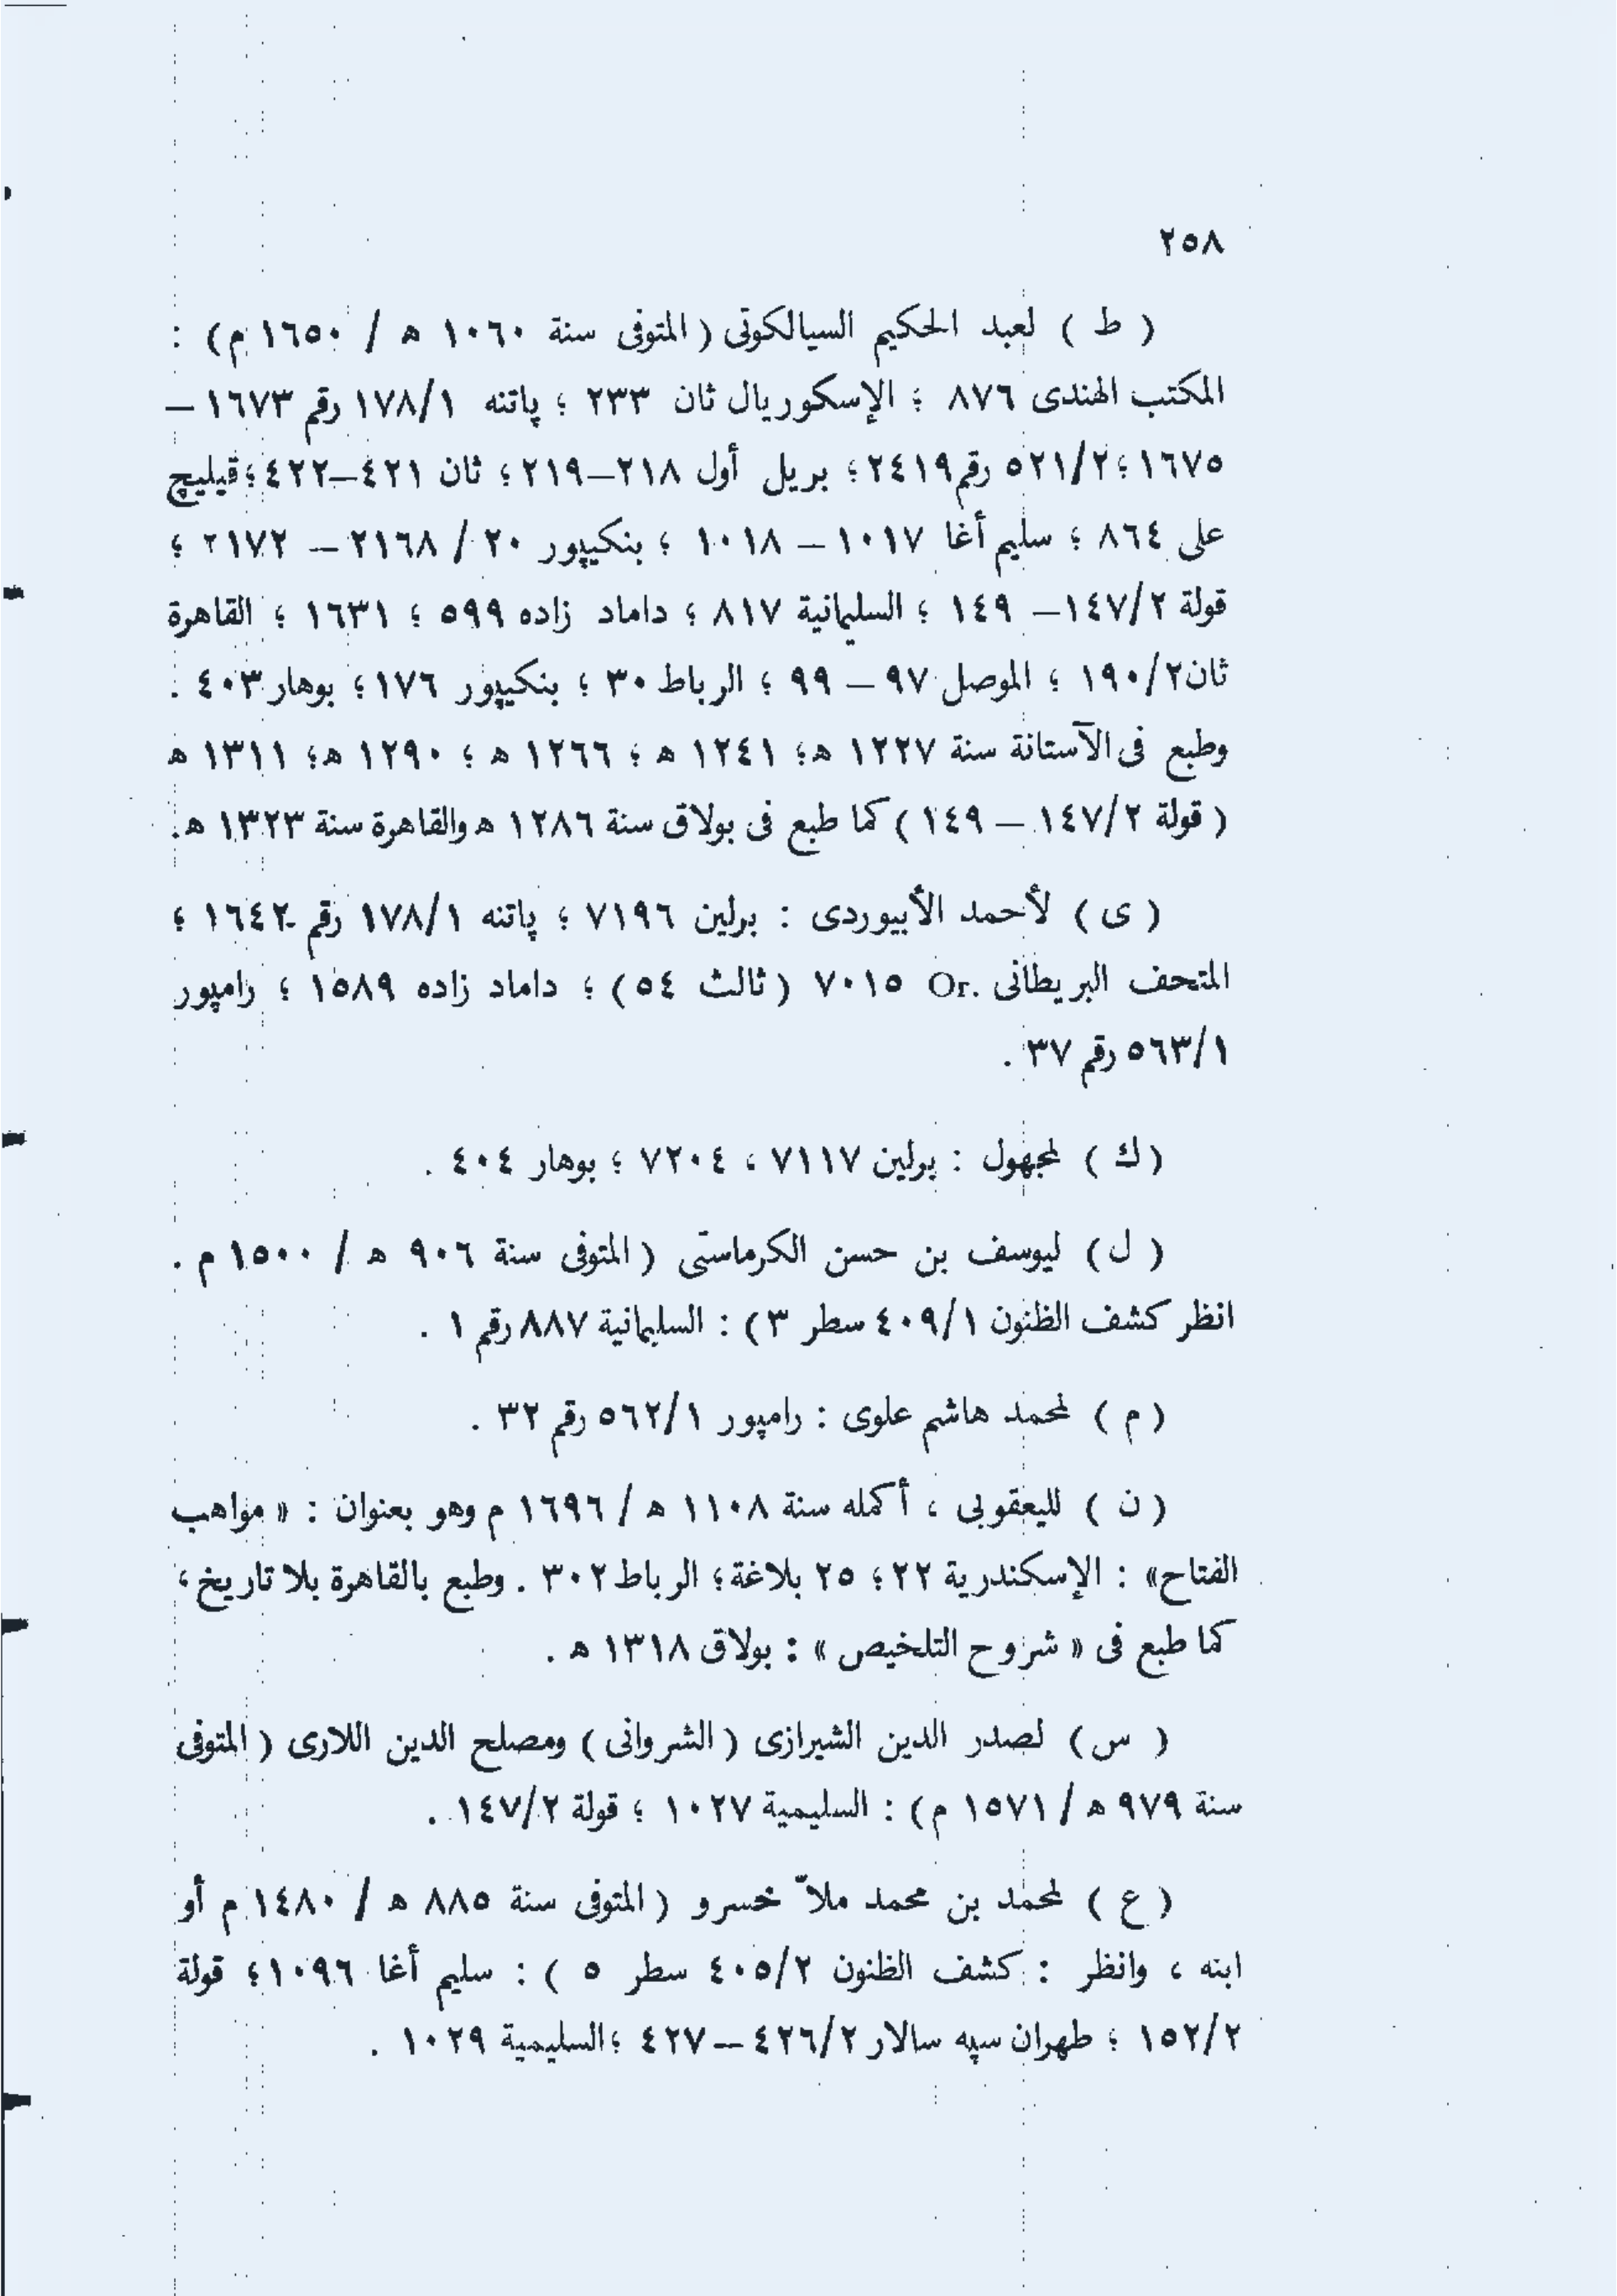 ٢٥٨
( ط ) لعبد الحكيم السيالكوتى ( المتوفى سنة ١٠٦٠ ه / ١٦٥٠ م ) :
المكتب الهندى ٨٧٦ ؛ الإسكوريال ثان ٢٣٣ ؛ پاتنه ١٧٨/١ رقم ١٦٧٣ –
١٦٧٥ ؛ ٥٢١/٢ رقم ٢٤١٩ ؛ بريل أول ٢١٨–٢١٩ ؛ ثان ٤٢١–٤٢٢ ؛ قيليچ
على ٨٦٤ ؛ سليم أغا ١٠١٧ – ١٠١٨ ؛ بنكيپور ٢٠ / ٢١٦٨ – ٢١٧٢ ؛
قولة ١٤٧/٢– ١٤٩ ؛ السليمانية ٨١٧ ؛ داماد زاده ٥٩٩ ؛ ١٦٣١ ؛ القاهرة
ثان ١٩٠/٢ ؛ الموصل ٩٧ – ٩٩ ؛ الرباط ٣٠ ؛ بنكيپور ١٧٦ ؛ بوهار ٤٠٣ .
وطبع فى الآستانة سنة ١٢٢٧ ه ؛ ١٢٤١ ه ؛ ١٢٦٦ ه ؛ ١٢٩٠ ه ؛ ١٣١١ ه
( قولة ١٤٧/٢ – ١٤٩ ) كما طبع فى بولاق سنة ١٢٨٦ ه والقاهرة سنة ١٣٢٣ ه.
( ى ) لأحمد الأبيوردى : برلين ٧١٩٦ ؛ پاتنه ١٧٨/١ رقم ١٦٤٢ ؛
المتحف البريطانى Or. ٧٠١٥ ( ثالث ٥٤ ) ؛ داماد زاده ١٥٨٩ ؛ رامپور
٥٦٣/١ رقم ٣٧ .
( ك ) لمجهول : برلين ٧١١٧ ، ٧٢٠٤ ؛ بوهار ٤٠٤ .
( ل ) ليوسف بن حسن الكرماستى ( المتوفى سنة ٩٠٦ ه / ١٥٠٠ م .
انظر كشف الظنون ٤٠٩/١ سطر ٣ ) : السليمانية ٨٨٧ رقم ١ .
( م ) لمحمد هاشم علوى : رامپور ٥٦٢/١ رقم ٣٢ .
( ن ) لليعقوبى ، أكمله سنة ١١٠٨ ه / ١٦٩٦ م وهو بعنوان : « مواهب
الفتاح» : الإسكندرية ٢٢ ؛ ٢٥ بلاغة ؛ الرباط ٣٠٢ . وطبع بالقاهرة بلا تاريخ ،
كما طبع فى « شروح التلخيص » : بولاق ١٣١٨ ه .
( س ) لصدر الدين الشيرازى ( الشروانى ) ومصلح الدين اللارى ( المتوفى
سنة ٩٧٩ ه / ١٥٧١ م ) : السليمية ١٠٢٧ ؛ قولة ١٤٧/٢ .
( ع ) لمحمد بن محمد ملاّ خسرو ( المتوفى سنة ٨٨٥ ه / ١٤٨٠ م أو
ابنه ، وانظر : كشف الظنون ٤٠٥/٢ سطر ٥ ) : سليم أغا ١٠٩٦ ؛ قولة
١٥٢/٢ ؛ طهران سپه سالار ٤٢٦/٢ – ٤٢٧ ؛ السليمية ١٠٢٩ .